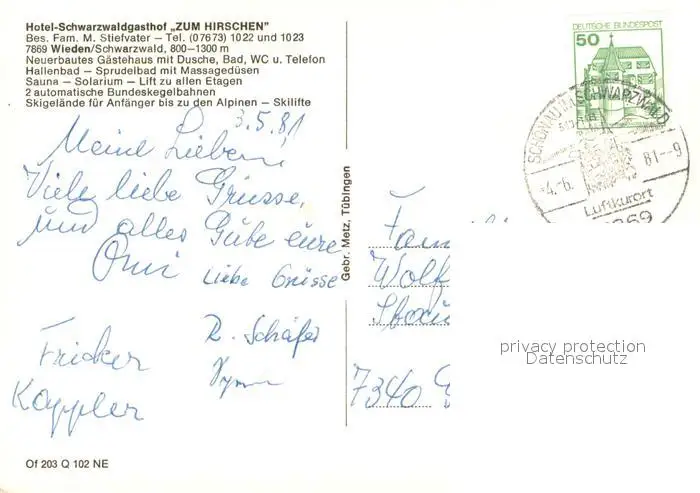 Hotel-Schwarzwaldgasthof „ZUM HIRSCHEN"
Bes. Fam. M. Stiefvater – Tel. (07673) 1022 und 1023
7869 Wieden/Schwarzwald, 800–1300 m
Neuerbautes Gästehaus mit Dusche, Bad, WC u. Telefon
Hallenbad – Sprudelbad mit Massagedüsen
Sauna – Solarium – Lift zu allen Etagen
2 automatische Bundeskegelbahnen
Skigelände für Anfänger bis zu den Alpinen – Skilifte
3.5.81
Meine Lieben,
Viele liebe Grüsse,
und alles Gute eure
Omi Liebe Grüsse
R. Schäfer
Fricker
Kappler
Of 203 Q 102 NE
Gebr. Metz, Tübingen
DEUTSCHE BUNDESPOST
50
SCHÖNAU IM SCHWARZWALD
81--9
Luftkurort
Fam
Wolf
7340
privacy protection
Datenschutz